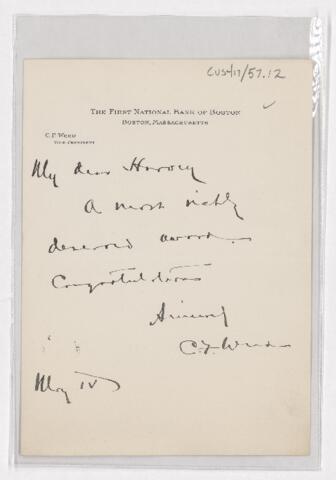 CUSH17/57.12
THE FIRST NATIONAL BANK OF BOSTON
BOSTON, MASSACHUSETTS
C. F. WEED
VICE-PRESIDENT
My dear Harvey
A most richly
deserved award.
Congratulations
Sincerely
C. F. Weed
May IV